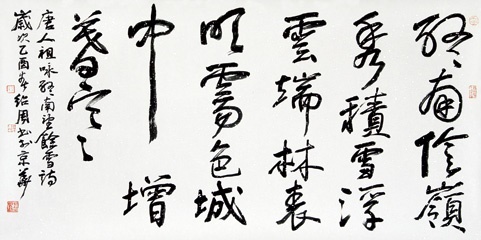 終南陰嶺
秀積雪浮
雲端林表
明霽色城
中增
暮寒
唐人祖詠終南望餘雪詩
歲次乙酉春紹周書於京華